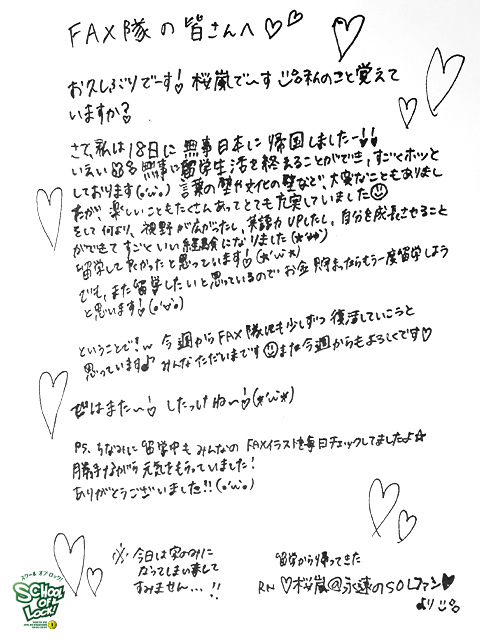 FAX隊の皆さんへ♡♡
お久しぶりでーす! 桜嵐でーす 私のこと覚えて
いますか?
さて、私は18日に無事日本に帰国しましたー!!
いえい 無事に留学生活を終えることができ、すごくホッと
しております(o'ω'o) 言葉の壁や文化の壁など、大変なこともありまし
たが 楽しいこともたくさんあってとても充実していました☺
そして何より、視野が広がったし、英語力UPしたし、自分を成長させること
ができて すごくいい経験になりました(*'ω'*)
留学して良かったと思っています!(*'ω'*)
でも、また留学したいと思っているので お金貯まったらもう一度留学しよう
と思います!(o'ω'o)
ということで!w 今週からFAX隊にも少しずつ復活していこうと
思っています♪ みんなただいまです☺また今週からもよろしくです♡
ではまたー! したっけねー!(*'ω'*)
P.S. ちなみに留学中もみんなのFAXイラストを毎日チェックしてましたよ☆
勝手ながら元気をもらっていました!
ありがとうございました!!(o'ω'o)
※今日は字のみに
なってしまいまして
すみません...!!
留学から帰ってきた
RN ♡桜嵐@永遠のSOLファン♥
より
スクール オブ ロック!
SCHOOL OF LOCK!